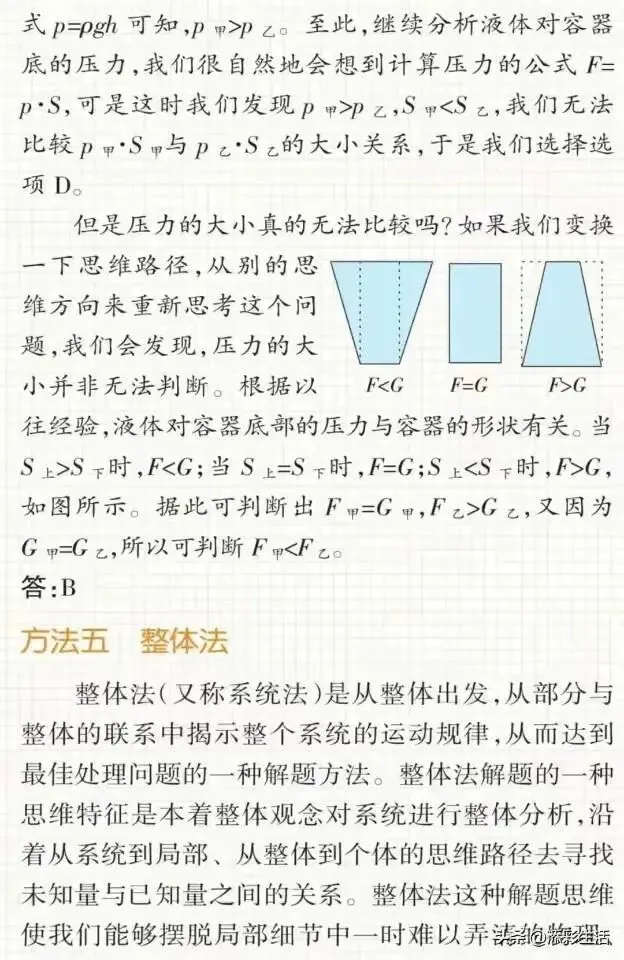 式 p=ρgh 可知,p 甲>p 乙。至此,继续分析液体对容器
底的压力,我们很自然地会想到计算压力的公式 F=
p·S,可是这时我们发现 p 甲>p 乙,S 甲<S 乙,我们无法
比较 p 甲·S 甲与 p 乙·S 乙的大小关系,于是我们选择选
项 D。
但是压力的大小真的无法比较吗?如果我们变换
一下思维路径,从别的思
维方向来重新思考这个问
题,我们会发现,压力的大
小并非无法判断。根据以
F<G F=G F>G
往经验,液体对容器底部的压力与容器的形状有关。当
S 上>S 下时,F<G;当 S 上=S 下时,F=G;S 上<S 下时,F>G,
如图所示。据此可判断出 F 甲=G 甲,F 乙>G 乙,又因为
G 甲=G 乙,所以可判断 F 甲<F 乙。
答:B
方法五 整体法
整体法(又称系统法)是从整体出发,从部分与
整体的联系中揭示整个系统的运动规律,从而达到
最佳处理问题的一种解题方法。整体法解题的一种
思维特征是本着整体观念对系统进行整体分析,沿
着从系统到局部、从整体到个体的思维路径去寻找
未知量与已知量之间的关系。整体法这种解题思维
使我们能够摆脱局部细节中一时难以弄